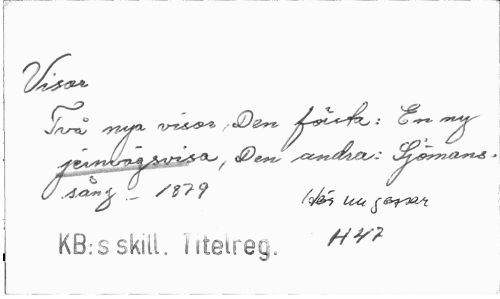 Visor
Två nya visor, Den första: En ny
järnvägsvisa, Den andra: Sjömans-
sång _ 1879
H 47
KB:s skill. Titelreg.